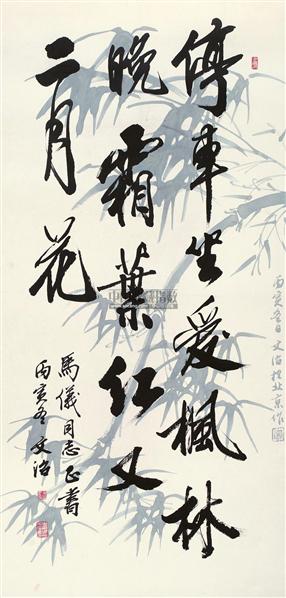 丙寅冬日文治於北京作
停車坐愛楓林
晚霜葉红
二月花
馬儀同志正書
丙寅冬文治